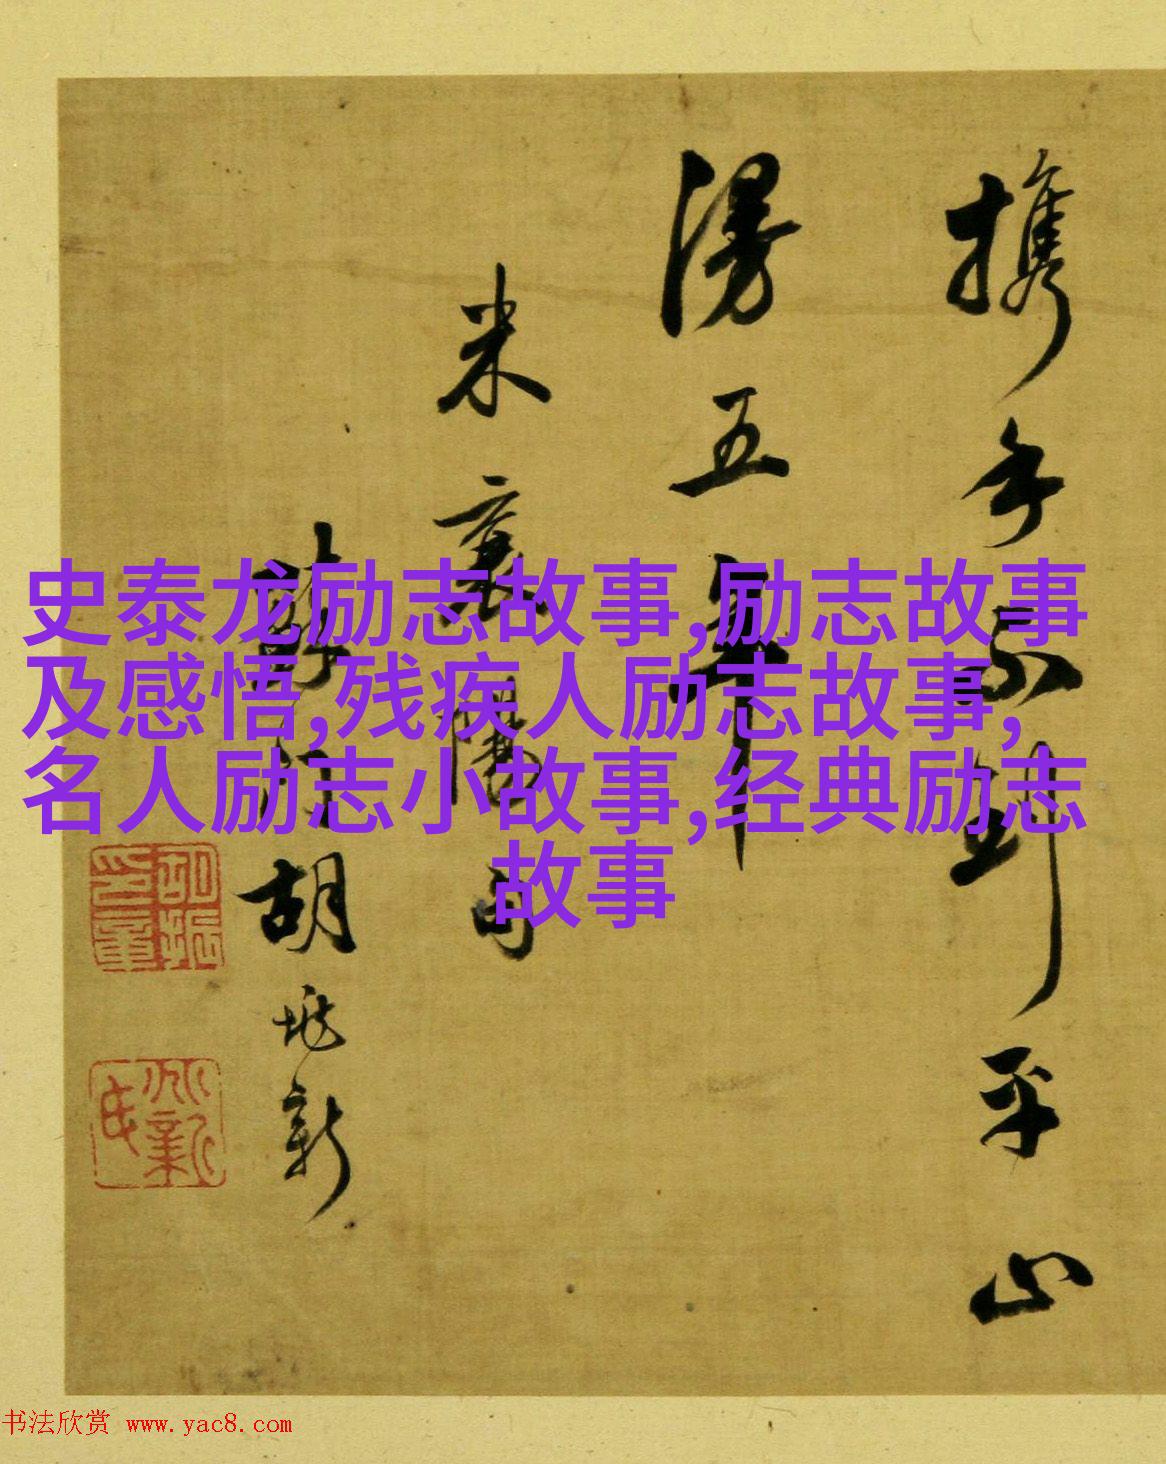 史泰龙励志故事,励志故事
及感悟,残疾人励志故事,
名人励志小故事,经典励志
故事
携手 到平山
漫五年
米襄陽句
胡 新
书法欣赏 www.yac8.com